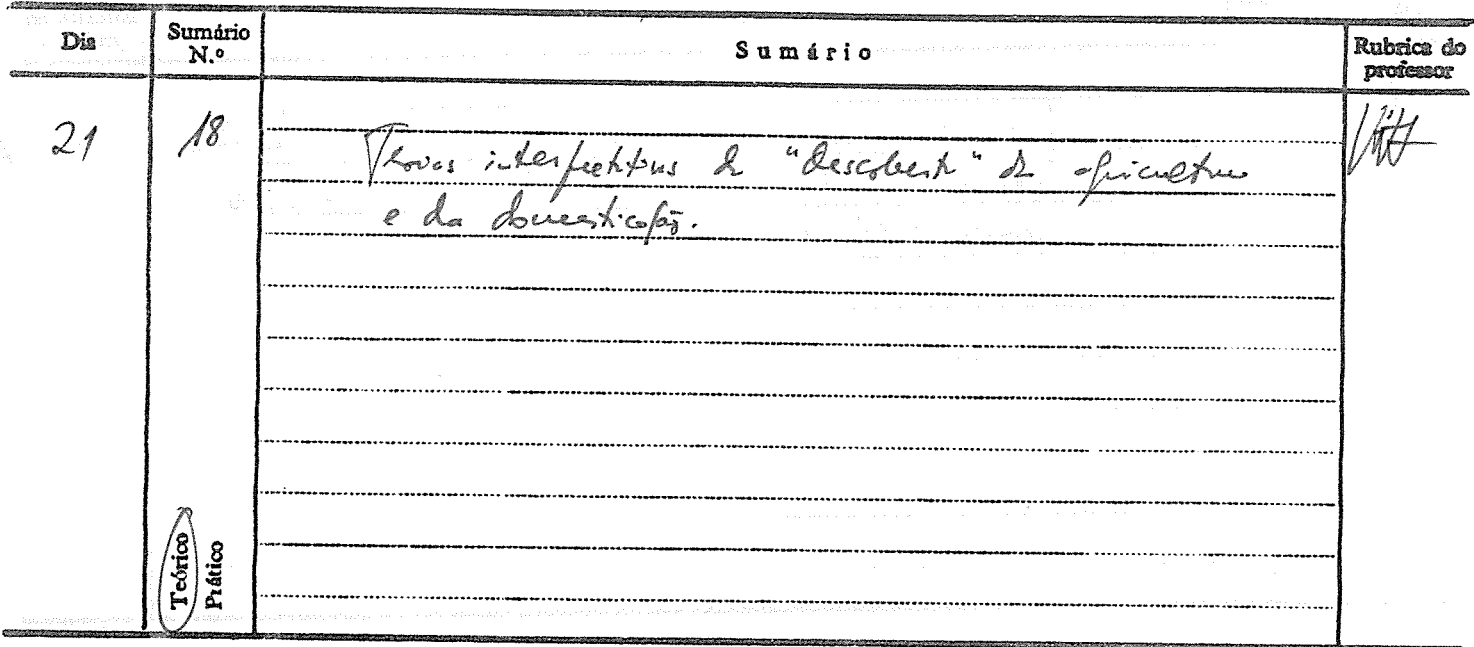 Dia
Sumário N.º
Sumário
Rubrica do professor
21
18
interpretativas da "descoberta" da agricultura
e da domesticação.
Teórico
Prático